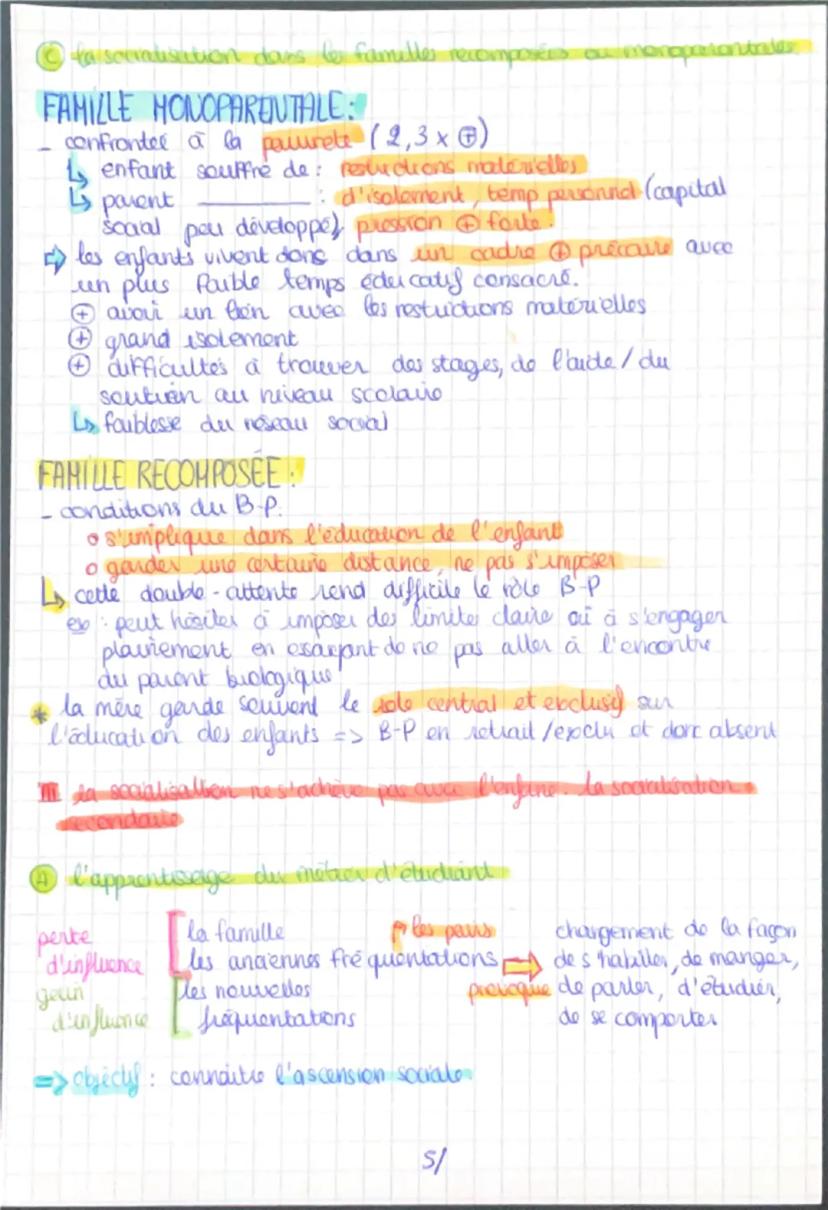 C la socialisation dans les familles recomposées ou monoparentales
FAMILLE MONOPARENTALE :
- confrontée à la pauvreté (2,3 x ⊕)
↳ enfant souffre de : restrictions matérielles
↳ parent ________ : d'isolement, temp personnel (capital
social peu développé) pression ⊕ forte.
⇨ les enfants vivent donc dans un cadre ⊕ précaire avec
un plus faible temps éducatif consacré.
⊕ avoir un lien avec les restrictions matérielles
⊕ grand isolement
⊕ difficultés à trouver des stages, de l'aide / du
soutien au niveau scolaire
↳ faiblesse du réseau social
FAMILLE RECOMPOSÉE :
- conditions du B-P.
o s'implique dans l'éducation de l'enfant
o garder une certaine distance, ne pas s'imposer
↳ cette double-attente rend difficile le rôle B-P
ex : peut hésiter à imposer des limites claire où à s'engager
plainement en essayant de ne pas aller à l'encontre
du parent biologique
* la mère garde souvent le role central et exclusif sur
l'éducation des enfants => B-P en retrait / exclu et donc absent
III la socialisation ne s'achève pas avec l'enfance. la socialisation
secondaire
A l'apprentissage du métier d'étudiant
perte
d'influence
la famille
les anciennes fréquentations
gain
d'influence
les nouvelles
fréquentations
↱ les pairs
⇨
provoque
changement de la façon
de s'habiller, de manger,
de parler, d'étudier,
de se comporter
=> objectif : connaître l'ascension sociale
5/